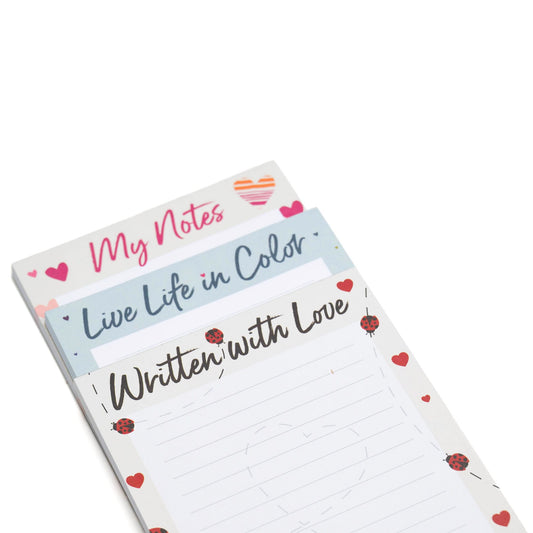 My Notes
Live Life in Color
Written with Love